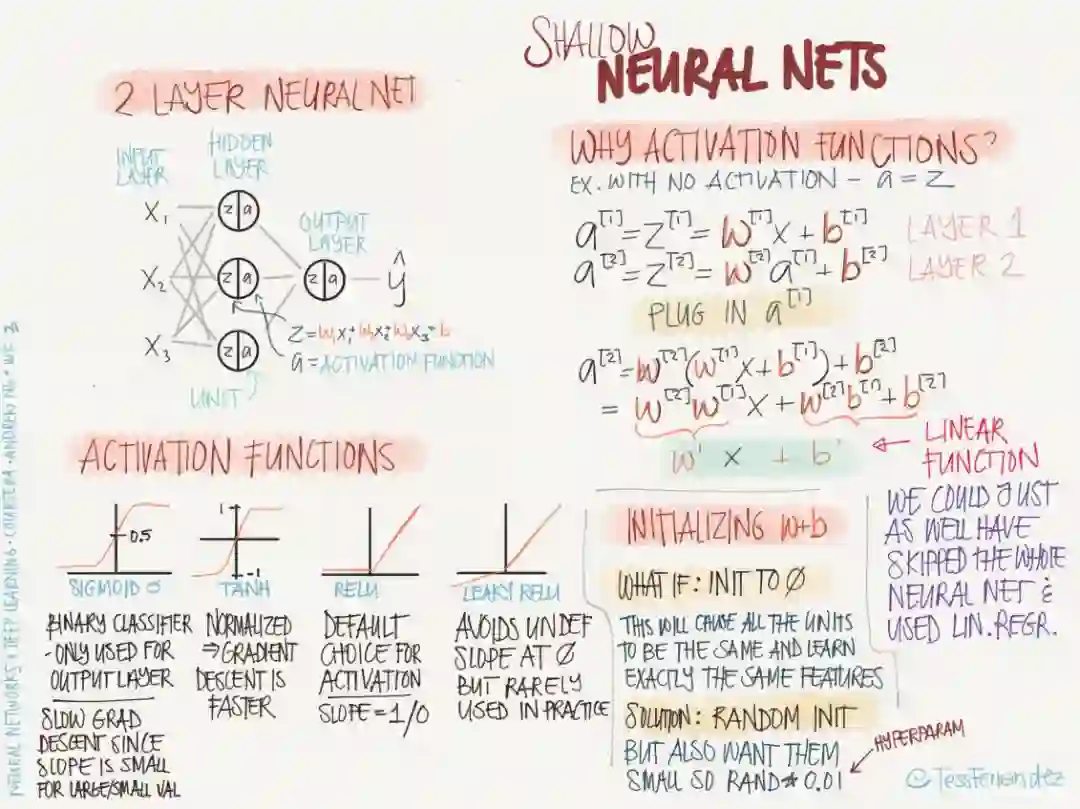 SHALLOW
NEURAL NETS
2 LAYER NEURAL NET
INPUT
LAYER
HIDDEN
LAYER
OUTPUT
LAYER
X₁
X₂
X₃
z|a
z|a
z|a
z|a
ŷ
Z=W₁X₁+W₂X₂+W₃X₃+b
a=ACTIVATION FUNCTION
UNIT
WHY ACTIVATION FUNCTIONS?
EX. WITH NO ACTIVATION - a = z
a^[1] = z^[1] = w^[1]x + b^[1] LAYER 1
a^[2] = z^[2] = w^[2]a^[1] + b^[2] LAYER 2
PLUG IN a^[1]
a^[2] = w^[2](w^[1]x + b^[1]) + b^[2]
= w^[2]w^[1]x + w^[2]b^[1] + b^[2]
w' x + b'
LINEAR
FUNCTION
WE COULD JUST
AS WELL HAVE
SKIPPED THE WHOLE
NEURAL NET &
USED LIN. REGR.
ACTIVATION FUNCTIONS
0.5
SIGMOID σ
BINARY CLASSIFIER
- ONLY USED FOR
OUTPUT LAYER
SLOW GRAD
DESCENT SINCE
SLOPE IS SMALL
FOR LARGE/SMALL VAL
1
-1
TANH
NORMALIZED
⇒ GRADIENT
DESCENT IS
FASTER
RELU
DEFAULT
CHOICE FOR
ACTIVATION
SLOPE = 1/0
LEAKY RELU
AVOIDS UNDEF
SLOPE AT Ø
BUT RARELY
USED IN PRACTICE
INITIALIZING W+b
WHAT IF: INIT TO Ø
THIS WILL CAUSE ALL THE UNITS
TO BE THE SAME AND LEARN
EXACTLY THE SAME FEATURES
SOLUTION: RANDOM INIT
BUT ALSO WANT THEM
SMALL SO RAND * 0.01
HYPERPARAM
©TessFerrandez
NEURAL NETWORKS & DEEP LEARNING · COURSERA · ANDREW NG · WK 3